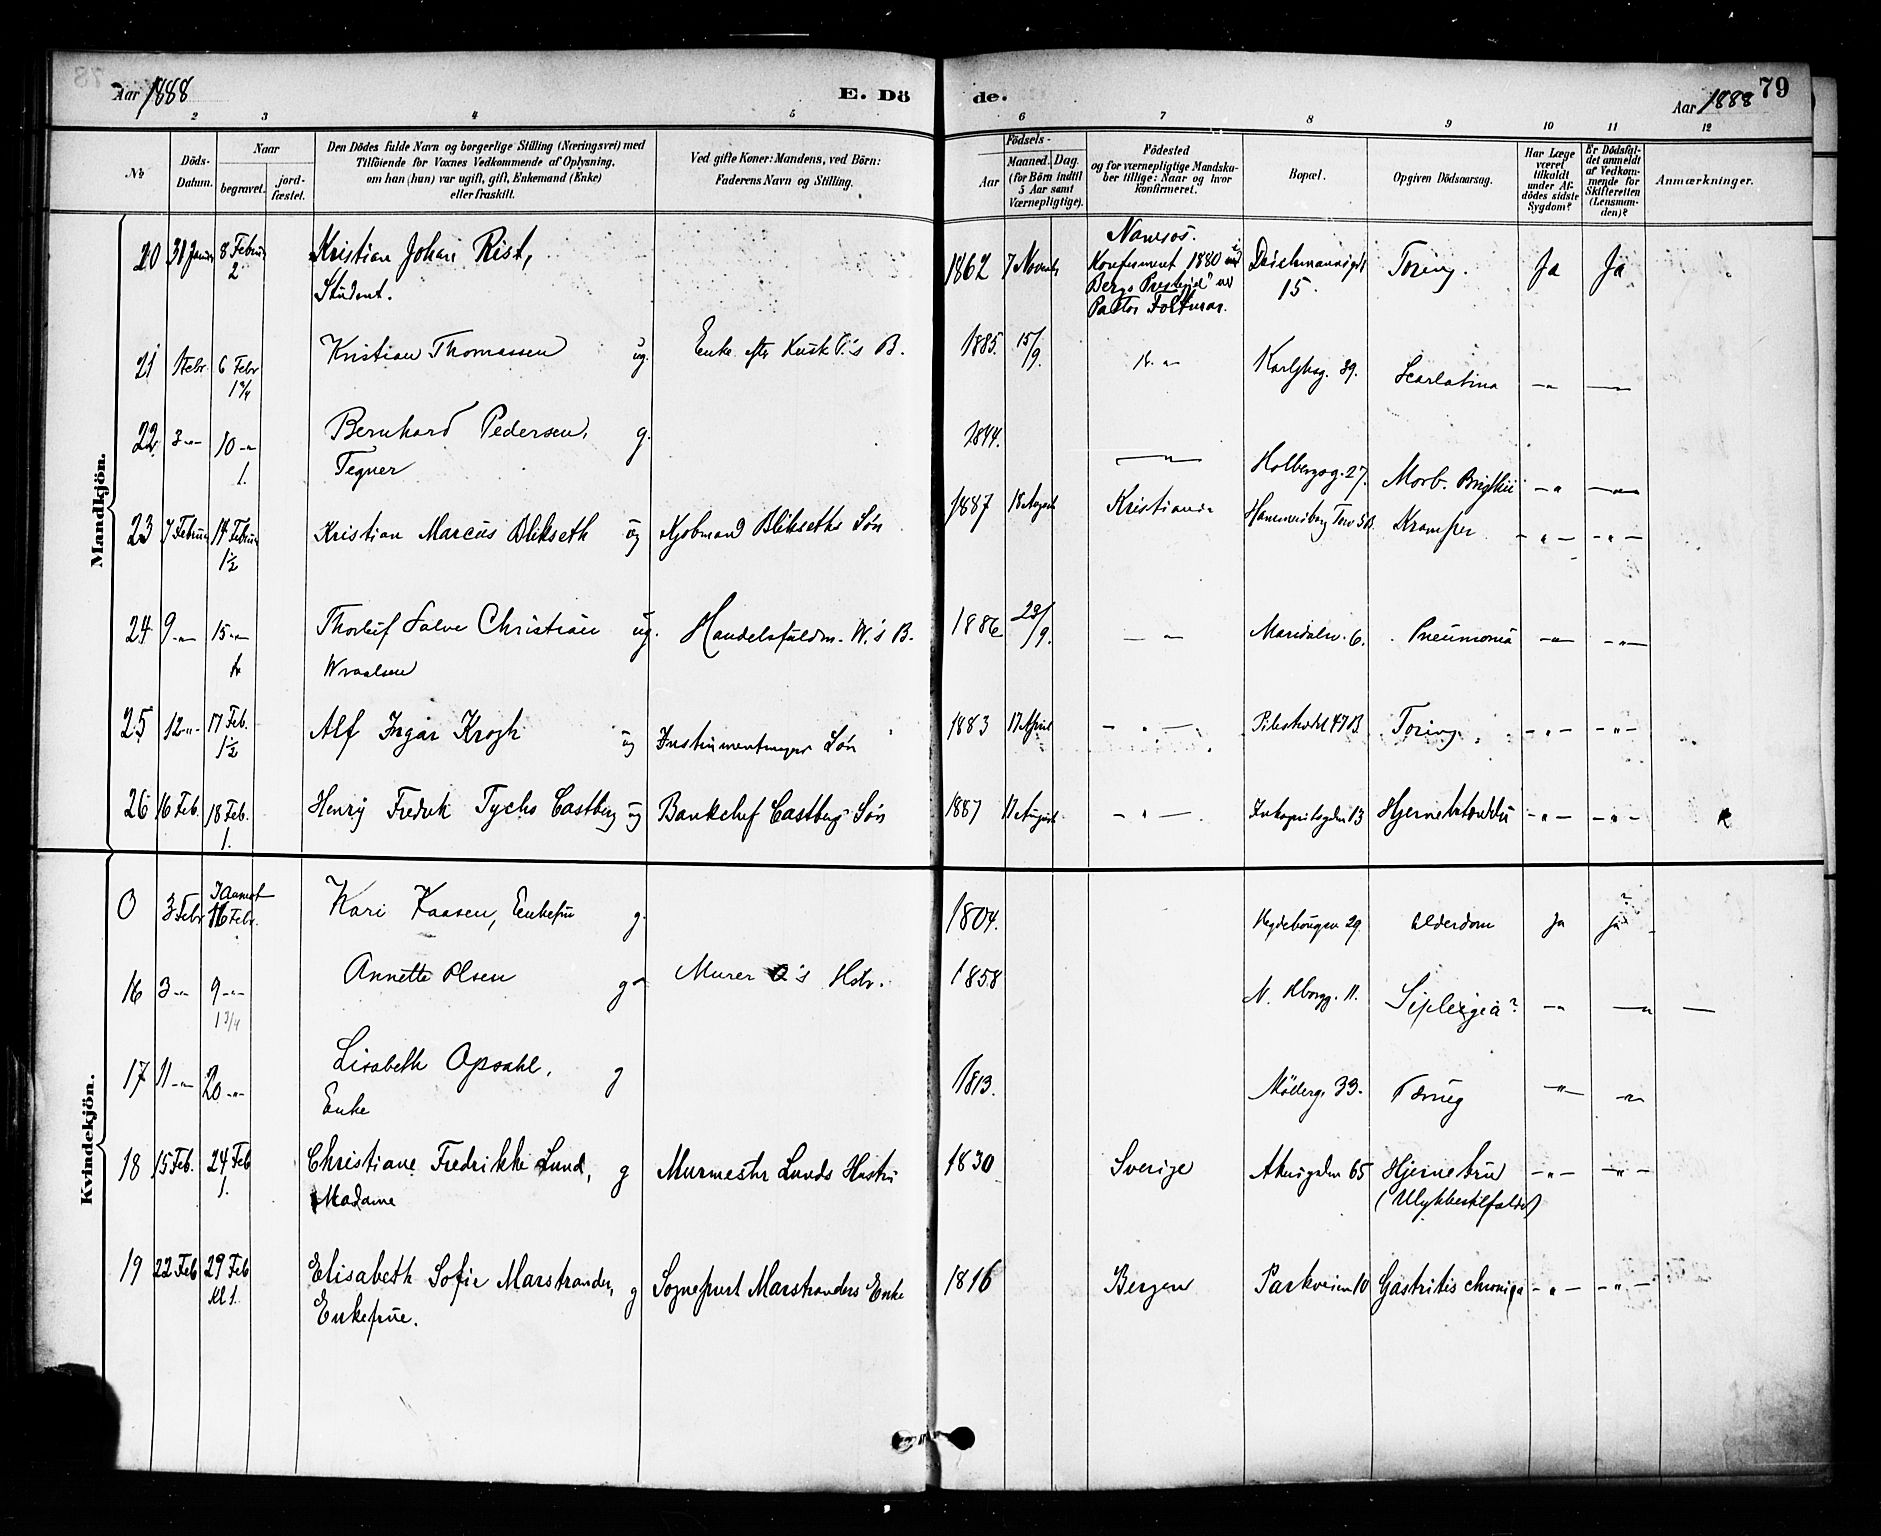 Aar 1888
E. Döde.
Aar 1888
79
2
3
4
5
6
7
8
9
10
11
12
No
Döds-
Datum.
Naar
begravet.
jord-
fæstet.
Den Dödes fulde Navn og borgerlige Stilling (Næringsvei) med
Tilföiende for Voxnes Vedkommende af Oplysning,
om han (hun) var ugift, gift, Enkemand (Enke)
eller fraskilt.
Ved gifte Koner: Mandens, ved Börn:
Faderens Navn og Stilling.
Födsels-
Aar
Maaned. Dag.
(for Börn indtil
5 Aar samt
Værnepligtige).
Födested
og for værnepligtige Mandska-
ber tillige: Naar og hvor
konfirmeret.
Bopæl.
Opgiven Dödsaarsag.
Har Læge
været
tilkaldt
under Af-
dödes sidste
Sygdom?
Er Dödsfal-
det anmeldt
af Vedkom-
mende for
Skifteretten
(Lensman-
den)?
Anmærkninger.
Mandkjön.
20 31 Januar 8 Februar
2
Kristian Johan Rist,
Student.
1862 7 Novembr
Namsos.
Konfirmeret 1880
Bergs Prestegjeld
Pastor
Deichmannsgd.
15.
Tæring. Ja Ja
21 1 Febr. 6 Febr
1 3/4
Kristian Thomassen ug.
Enke efter Kusk T.'s B.
1885. 15/9.
Karljhsg. 39. Scarlatina -„- -„-
22 3 -„- 10 -„-
1.
Bernhard Pedersen, g.
Tegner
1844. -„- Holbergsg. 27. Morb. Brigthii -„- -„-
23 7 Februar 14 Februar
1½
Kristian Marcus Blikseth ug Kjøbmand Blikseths Søn
1887 18 August Kristiania Hammersborg Torv 5B. Kramper -„- -„-
24 9 -„- 15 -„-
Thorleif Salve Christian ug. Handelsfuldm. W.'s B.
Wraalsen
1886 29/9. -„- Maridalsv. 6. Pneumonia -„- -„-
25 12 -„- 17 Feb.
1½
Alf Ingar Krogh ug Instrumentmager Søn
1883 17 April -„- Pilestrædet 47B. Tæring -„- -„-
26 16 Feb. 18 Feb.
1.
Henry Fredrik Tycho Castberg ug Bankchef Castbergs Søn
1887 17 August -„- Inkognitogaden 13 Hjernebetændelse -„- -„-
Kvindekjön.
0 3 Febr. 16 Febr.
Kari Kaasen, Enkefru g.
1804. Hegdehaugen 29. Alderdom ja ja
16 3 -„- 9 -„-
1 3/4
Annette Olsen g. Murer O's Hstr.
1858 11. -„- -„-
17 11 -„- 20 -„-
Lisabeth Opsahl, g
Enke
1813. Möllerg. 33. Tæring -„- -„-
18 15 Feb. 24 Feb
1.
Christiane Fredrikke Lund, g Murmester Lunds Hustru
Madame
1830 Sverige Akersgaden 65 Hjernebrud -„- -„-
(Ulykkestilfælde)
19 22 Feb 29 Feb
Kl 1.
Elisabeth Sofie Marstrander, g Sogneprest Marstranders Enke
Enkefrue.
1816 Bergen Parkveien 10 Gastritis chronica -„- -„-